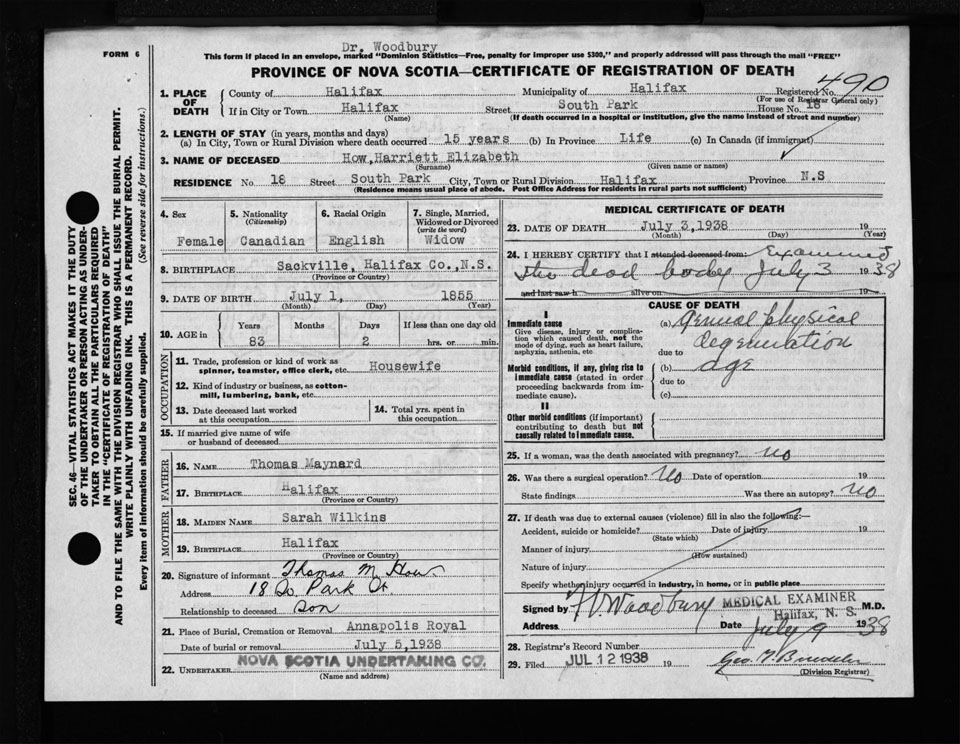 Dr. Woodbury
FORM 6
This form if placed in an envelope, marked "Dominion Statistics—Free, penalty for improper use $300," and properly addressed will pass through the mail "FREE"
PROVINCE OF NOVA SCOTIA—CERTIFICATE OF REGISTRATION OF DEATH
490
1. PLACE OF DEATH County of Halifax Municipality of Halifax Registered No.
(For use of Registrar General only)
If in City or Town Halifax Street South Park House No. 18
(Name) (If death occurred in a hospital or institution, give the name instead of street and number)
2. LENGTH OF STAY (in years, months and days)
(a) In City, Town or Rural Division where death occurred 15 years (b) In Province Life (c) In Canada (if immigrant)
3. NAME OF DECEASED How, Harriett Elizabeth
(Surname) (Given name or names)
RESIDENCE No. 18 Street South Park City, Town or Rural Division Halifax Province N.S
(Residence means usual place of abode. Post Office Address for residents in rural parts not sufficient)
SEC. 46—VITAL STATISTICS ACT MAKES IT THE DUTY
OF THE UNDERTAKER OR PERSON ACTING AS UNDER-
TAKER TO OBTAIN ALL THE PARTICULARS REQUIRED
IN THE "CERTIFICATE OF REGISTRATION OF DEATH"
AND TO FILE THE SAME WITH THE DIVISION REGISTRAR WHO SHALL ISSUE THE BURIAL PERMIT.
WRITE PLAINLY WITH UNFADING INK. THIS IS A PERMANENT RECORD.
Every item of information should be carefully supplied. (See reverse side for instructions.)
4. Sex
Female
5. Nationality
(Citizenship)
Canadian
6. Racial Origin
English
7. Single, Married, Widowed or Divorced
(write the word)
Widow
8. BIRTHPLACE Sackville, Halifax Co., N.S.
(Province or Country)
9. DATE OF BIRTH July 1, 1855
(Month) (Day) (Year)
10. AGE in Years Months Days If less than one day old
83 2 hrs. or min.
OCCUPATION
11. Trade, profession or kind of work as
spinner, teamster, office clerk, etc. Housewife
12. Kind of industry or business, as cotton-
mill, lumbering, bank, etc.
13. Date deceased last worked
at this occupation
14. Total yrs. spent in
this occupation
15. If married give name of wife
or husband of deceased
FATHER
16. NAME Thomas Maynard
17. BIRTHPLACE Halifax
(Province or Country)
MOTHER
18. MAIDEN NAME Sarah Wilkins
19. BIRTHPLACE Halifax
(Province or Country)
20. Signature of informant Thomas M How
Address 18 So. Park St.
Relationship to deceased son
21. Place of Burial, Cremation or Removal Annapolis Royal
Date of burial or removal July 5, 1938
22. UNDERTAKER NOVA SCOTIA UNDERTAKING CO.
(Name and address)
MEDICAL CERTIFICATE OF DEATH
23. DATE OF DEATH July 3, 1938 19
(Month) (Day) (Year)
24. I HEREBY CERTIFY that I attended deceased from: Examined
the dead body July 3 1938
and last saw h alive on 19
CAUSE OF DEATH
I
Immediate cause
Give disease, injury or complica-
tion which caused death, not the
mode of dying, such as heart failure,
asphyxia, asthenia, etc.
(a) General physical
degeneration
due to
Morbid conditions, if any, giving rise to
immediate cause (stated in order
proceeding backwards from im-
mediate cause).
(b) age
due to
(c)
II
Other morbid conditions (if important)
contributing to death but not
causally related to immediate cause.
25. If a woman, was the death associated with pregnancy? No
26. Was there a surgical operation? No Date of operation 19
State findings Was there an autopsy? No
27. If death was due to external causes (violence) fill in also the following:—
Accident, suicide or homicide? Date of injury 19
(State which)
Manner of injury
(How sustained)
Nature of injury
Specify whether injury occurred in industry, in home, or in public place
Signed by Woodbury MEDICAL EXAMINER M.D.
Halifax, N. S.
Address Date July 9 1938
28. Registrar's Record Number
29. Filed JUL 12 1938 19
(Division Registrar)